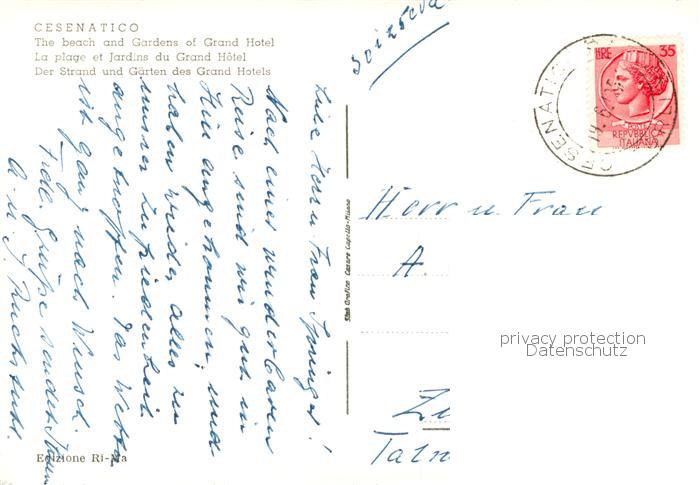 CESENATICO
The beach and Gardens of Grand Hotel
La plage et Jardins du Grand Hôtel
Der Strand und Gärten des Grand Hotels
Svizzera
LIRE 35
POSTE
REPVBBLICA
ITALIANA
CESENATICO
Liebe Herr u. Frau
Nach einer wunderbaren
Reise sind wir gut in
angekommen, und
haben wieder alles zu
unserer Zufriedenheit
angetroffen. Das Wetter
ist ganz nach Wunsch.
Frdl. Grüsse sendet Ihnen
A. u. J.
Stab Grafico Cesare Capello-Milano
Herr u. Frau
A.
Zü
Taln
privacy protection
Datenschutz
Edizione Ri-Ma